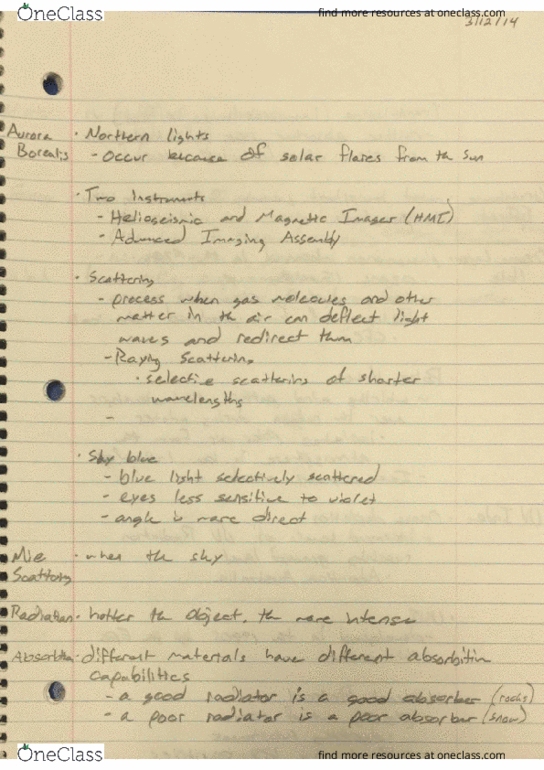 OneClass
find more resources at oneclass.com
3/12/14
Aurora Borealis · Northern lights
- occur because of solar flares from th sun
· Two Instruments
- Helioseismic and Magnetic Imager (HMI)
- Advanced Imaging Assembly
· Scattering
- process when gas molecules and other
matter in th air can deflect light
waves and redirect them
- Raying Scattering
· selective scattering of shorter
wavelengths
-
· Sky blue
- blue light selectively scattered
- eyes less sensitive to violet
- angle is more direct
Mie Scattering · when the sky
Radiation · hotter th object, th more intense
Absorbtion · different materials have different absorbition
capabilities
- a good radiator is a good absorber (rocks)
- a poor radiator is a poor absorber (snow)
OneClass
find more resources at oneclass.com